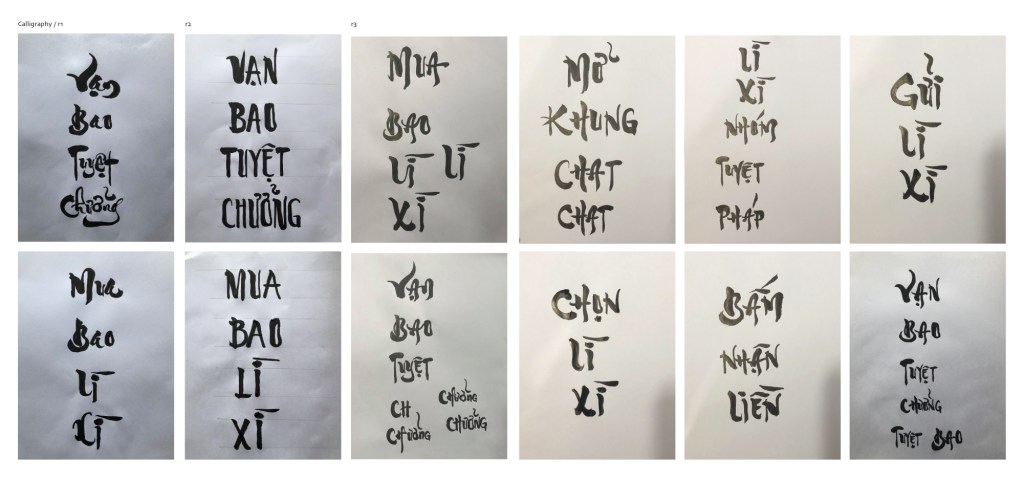 Calligraphy / r1
r2
r3
Vạn
Bao
Tuyệt
Chưởng
VẠN
BAO
TUYỆT
CHƯỞNG
MUA
BAO
LÌ LÌ
XÌ
MỞ
KHUNG
CHAT
CHAT
LÌ
XÌ
NHÓM
TUYỆT
PHÁP
GỬI
LÌ
XÌ
Mua
Bao
Lì
Xì
MUA
BAO
LÌ
XÌ
VẠN
BAO
TUYỆT
Chưởng
CH CHƯỞNG
Chưởng
CHỌN
LÌ
XÌ
BẤM
NHẬN
LIỀN
VẠN
BAO
TUYỆT
CHƯỞNG
TUYỆT BAO